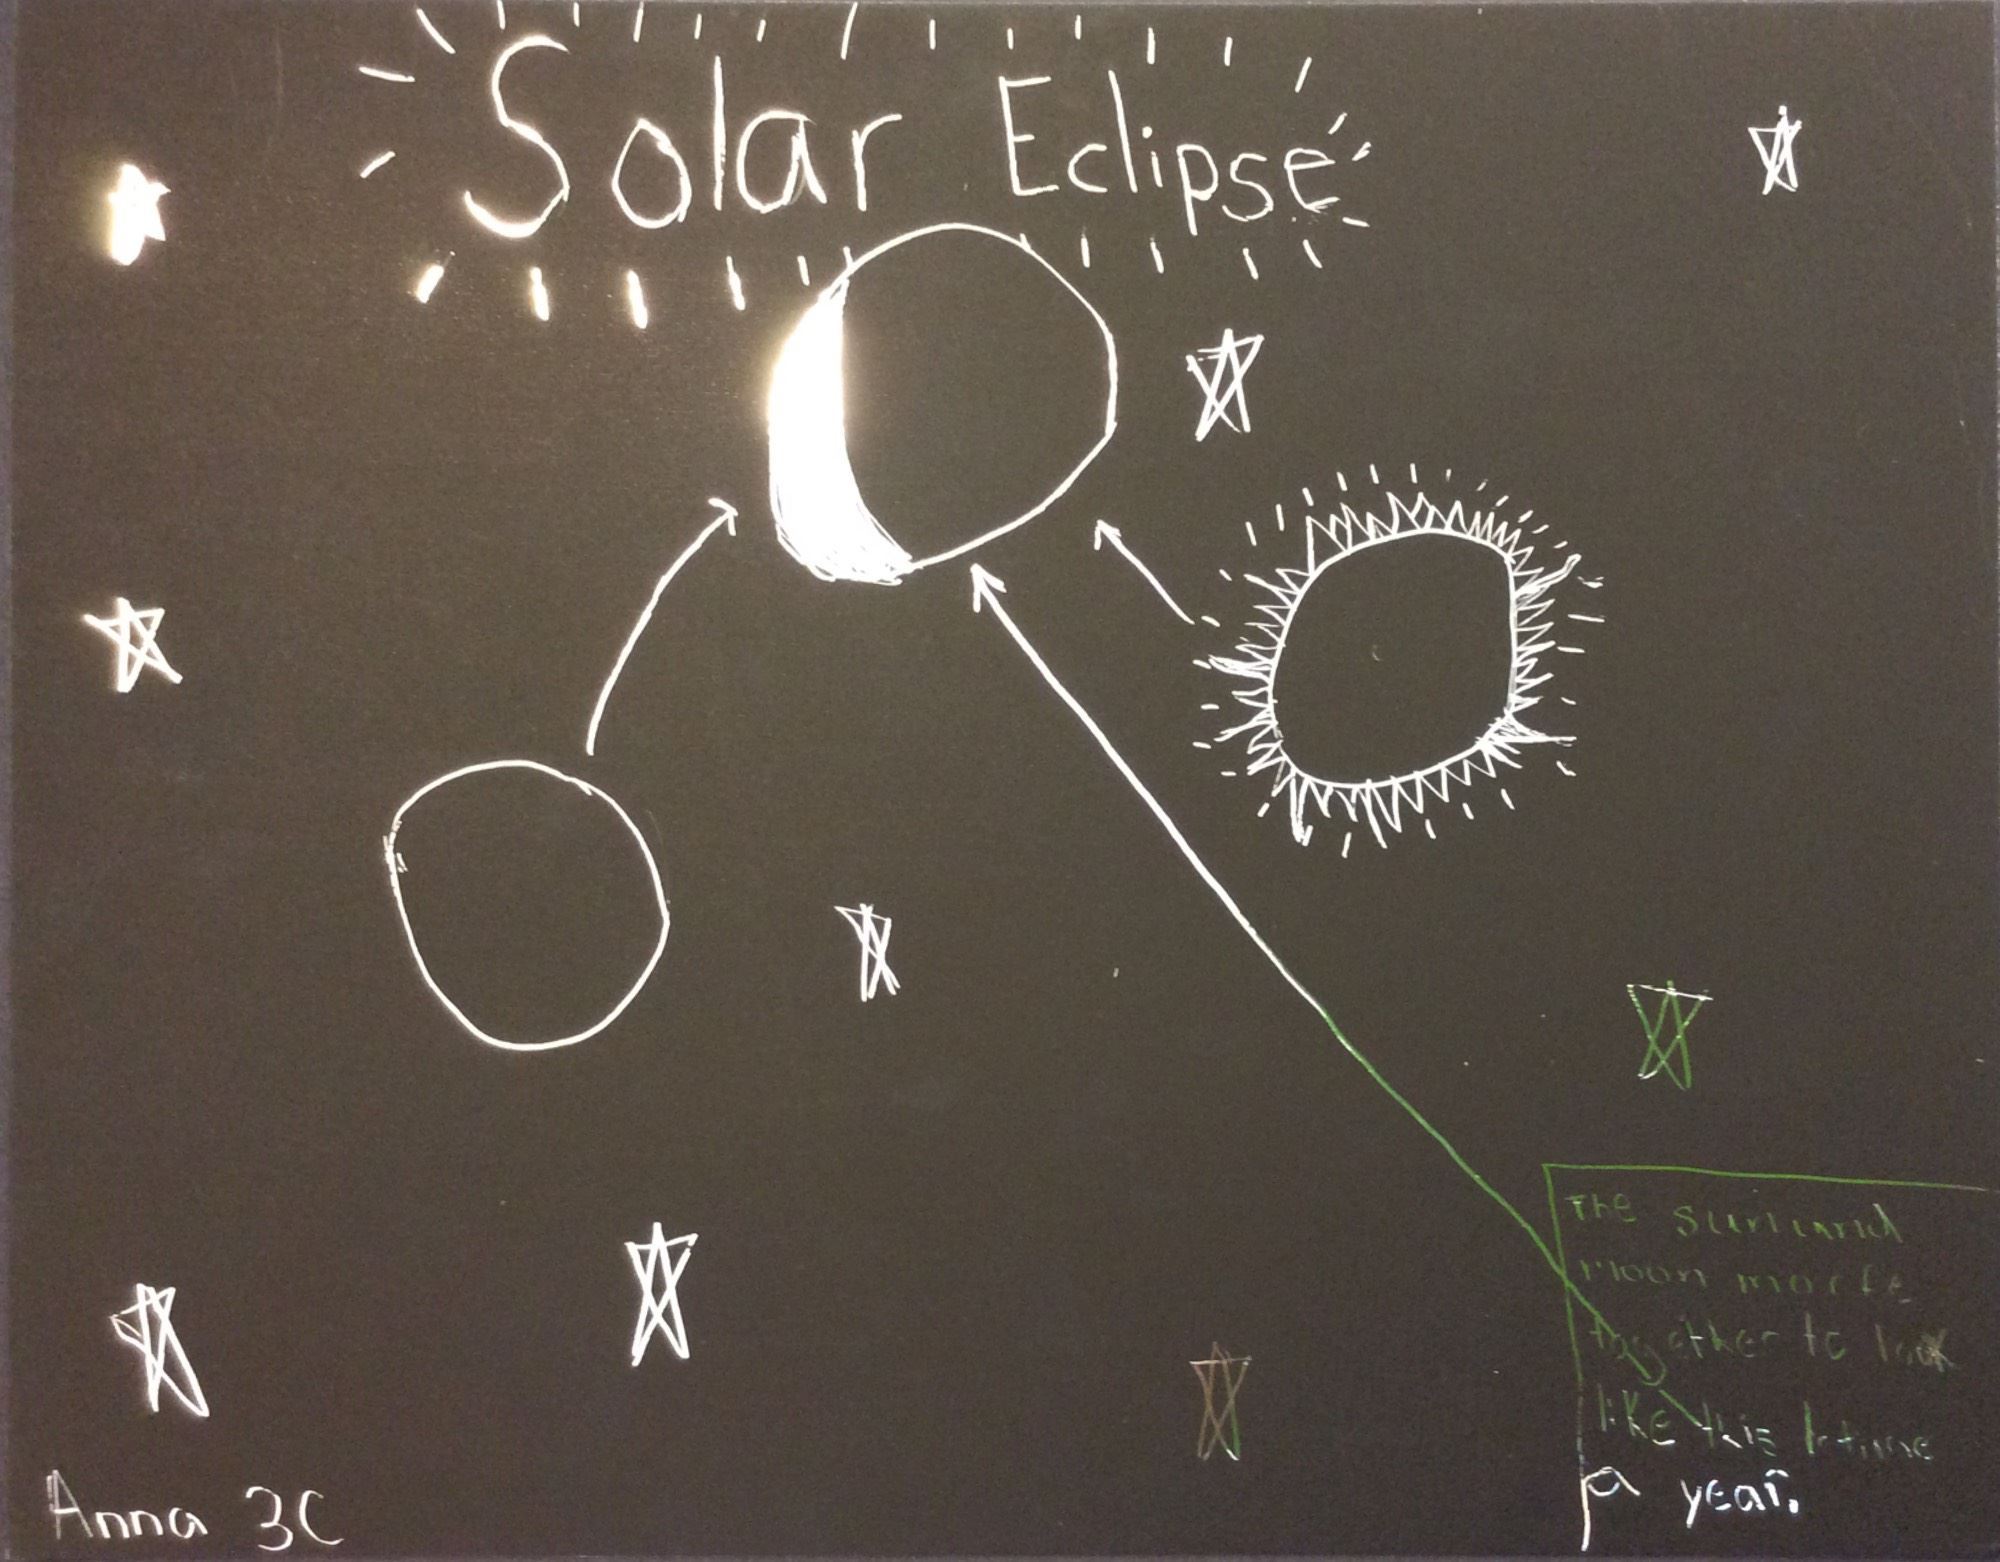 Solar Eclipse
The sun and
moon morfe
together to look
like this 1 time
a year.
Anna 3C